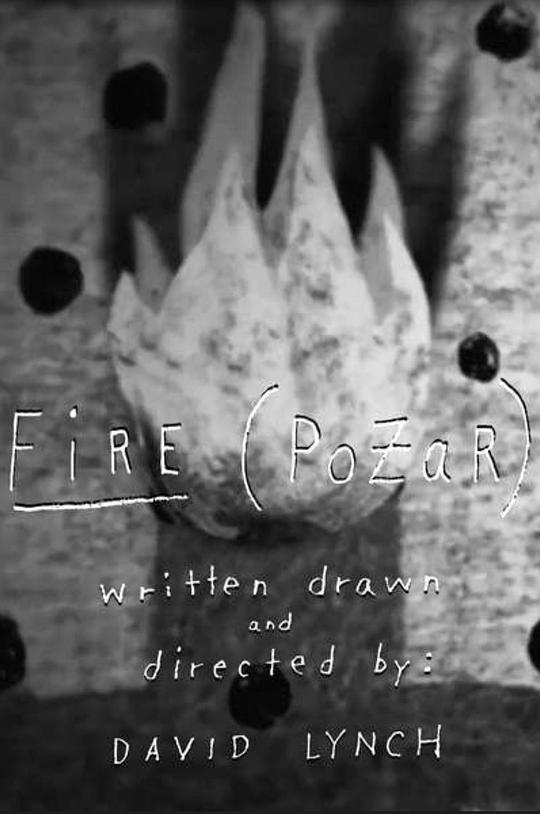 FiRE (PoƵaR)
written drawn
and
directed by:
DAVID LYNCH